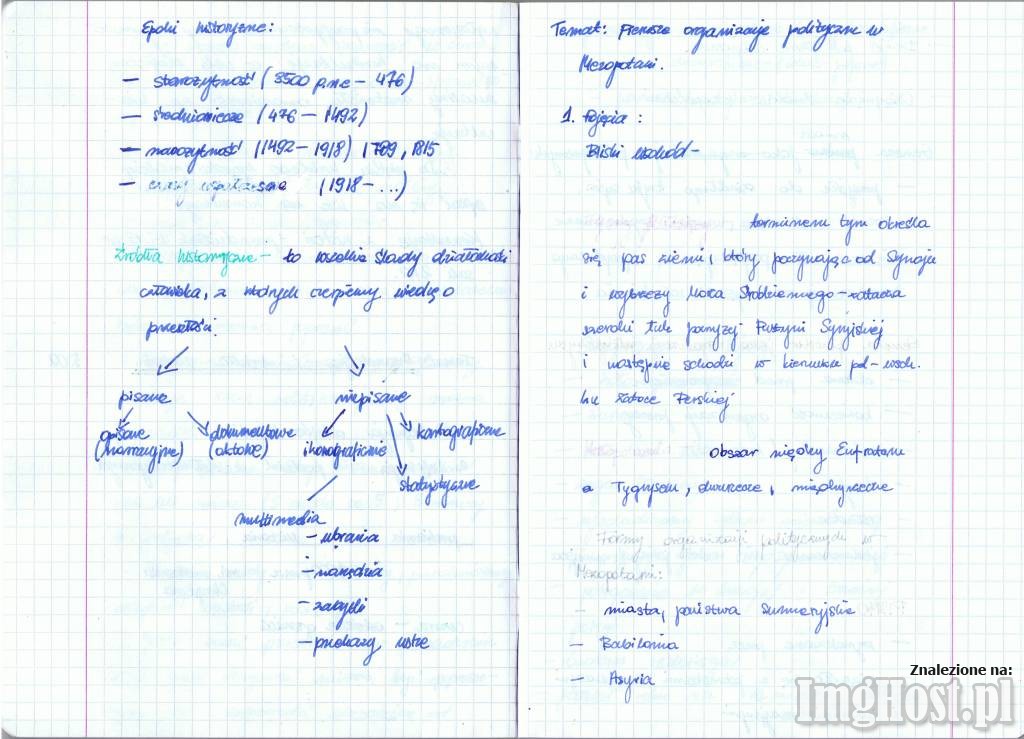 Epoki historyczne:
— starożytność (3500 p.n.e – 476)
— średniowiecze (476 – 1492)
— nowożytność (1492 – 1918) 1789, 1815
— czasy współczesne (1918 – ...)
Źródła historyczne – to wszelkie ślady działalności
człowieka, z których czerpiemy wiedzę o
przeszłości:
pisane niepisane
opisowe dokumentowe ikonograficzne kartograficzne
(narracyjne) (aktowe)
statystyczne
multimedia
– ubrania
– narzędzia
– zabytki
– przekazy ustne
Temat: Pierwsze organizacje polityczne w
Mezopotamii.
1. Pojęcia:
Bliski wschód –
terminem tym określa
się pas ziemi, który poczynając od Synaju
i wybrzeży Morza Śródziemnego – zatacza
szeroki łuk powyżej Pustyni Syryjskiej
i następnie schodzi w kierunku pd – wsch.
ku zatoce Perskiej
obszar między Eufratem
a Tygrysem, dwurzecze, międzyrzecze
Formy organizacji politycznych w
Mezopotamii:
– miasta, państwa Sumeryjskie
– Babilonia
– Asyria
Znalezione na:
ImgHost.pl